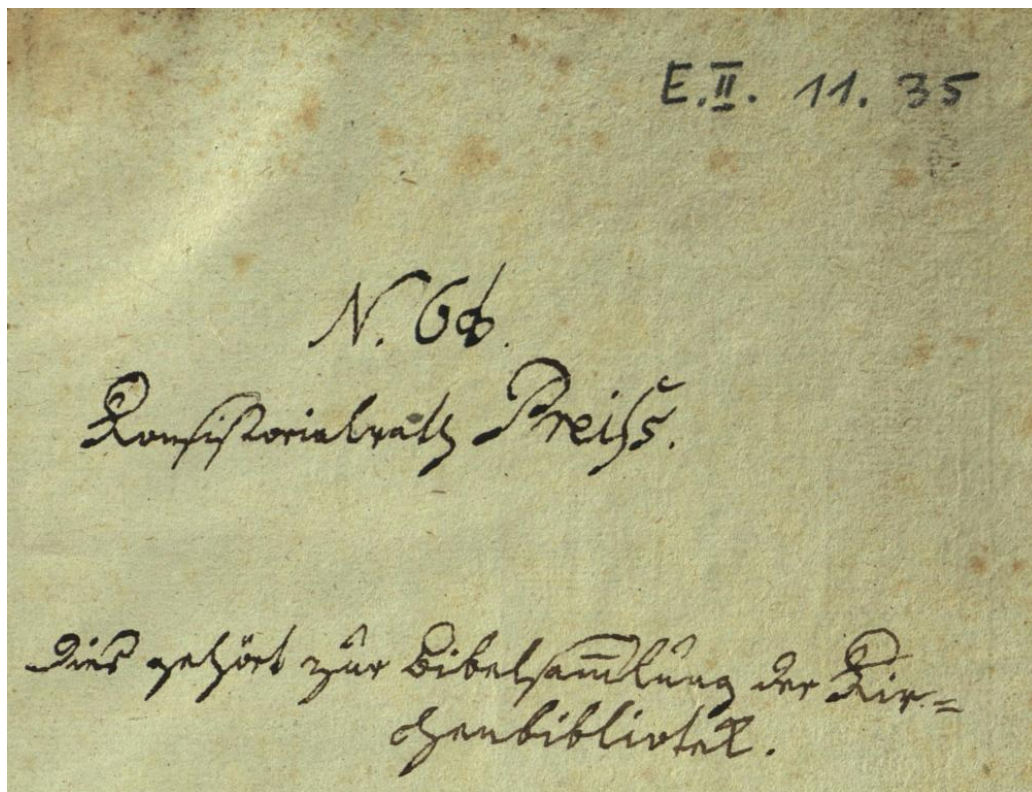 E.II. 11. 35
N. 68.
Konsistorialrath Preiſs.
Dies gehört zur Bibelsam̅lung der Kir=
chenbibliotek.